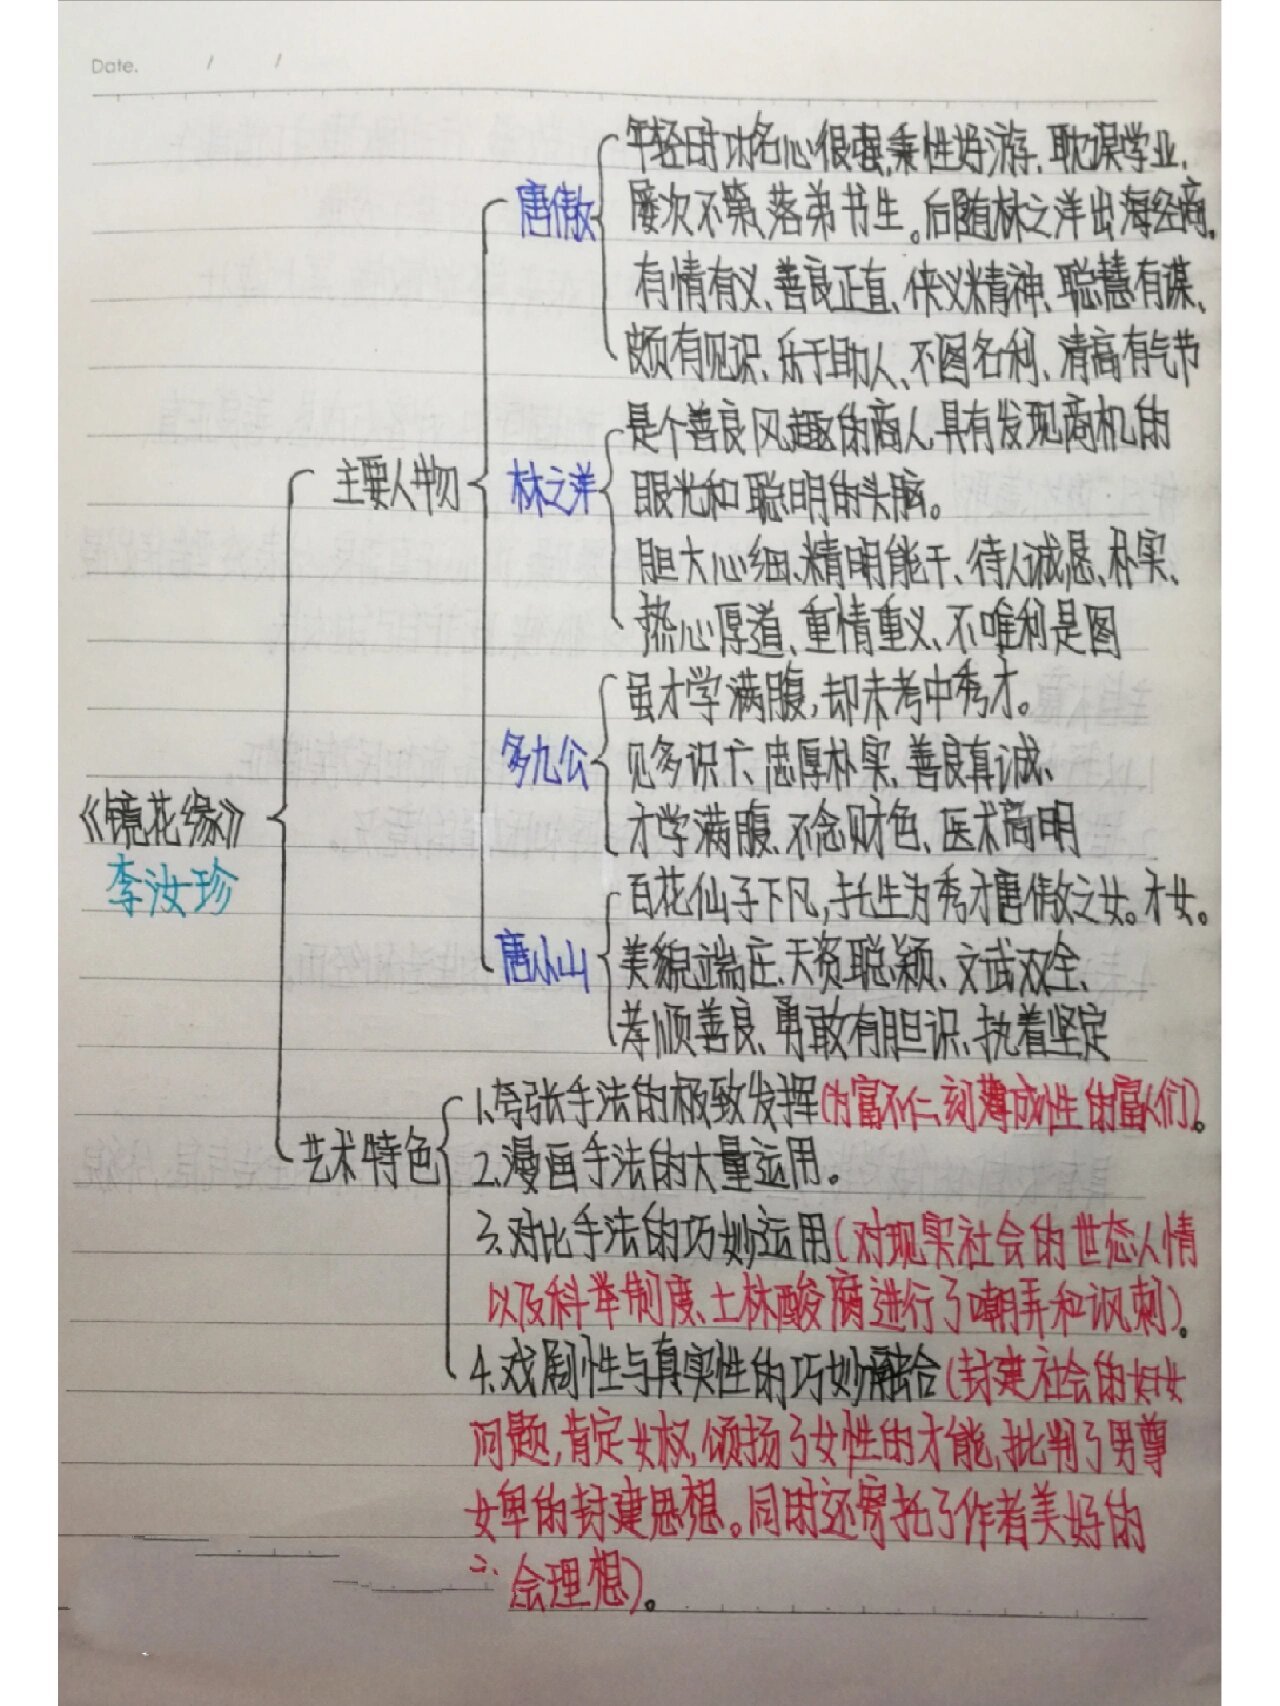 Date. / /
年轻时功名心很强,秉性好游、耽误学业、
唐傲
屡次不第、落弟书生。后随林之洋出海经商。
有情有义、善良正直、侠义精神、聪慧有谋、
颇有见识、乐于助人、不图名利、清高有气节
是个善良风趣的商人,具有发现商机的
主要人物
林之洋
眼光和聪明的头脑。
胆大心细、精明能干、待人诚恳、朴实、
热心厚道、重情重义、不唯利是图
虽才学满腹,却未考中秀才。
多九公
见多识广、忠厚朴实、善良真诚、
《镜花缘》
才学满腹、不念财色、医术高明
李汝珍
百花仙子下凡,托生为秀才唐傲之女。才女。
唐小山
美貌端庄、天资聪颖、文武双全、
孝顺善良、勇敢有胆识、执着坚定
1.夸张手法的极致发挥(为富不仁、刻薄成性的富人们)。
艺术特色
2.漫画手法的大量运用。
3.对比手法的巧妙运用(对现实社会的世态人情
以及科举制度、士林酸腐进行了嘲弄和讽刺)。
4.戏剧性与真实性的巧妙融合(封建社会的妇女
问题,肯定女权,颂扬了女性的才能,批判了男尊
女卑的封建思想。同时还寄托了作者美好的
会理想)。